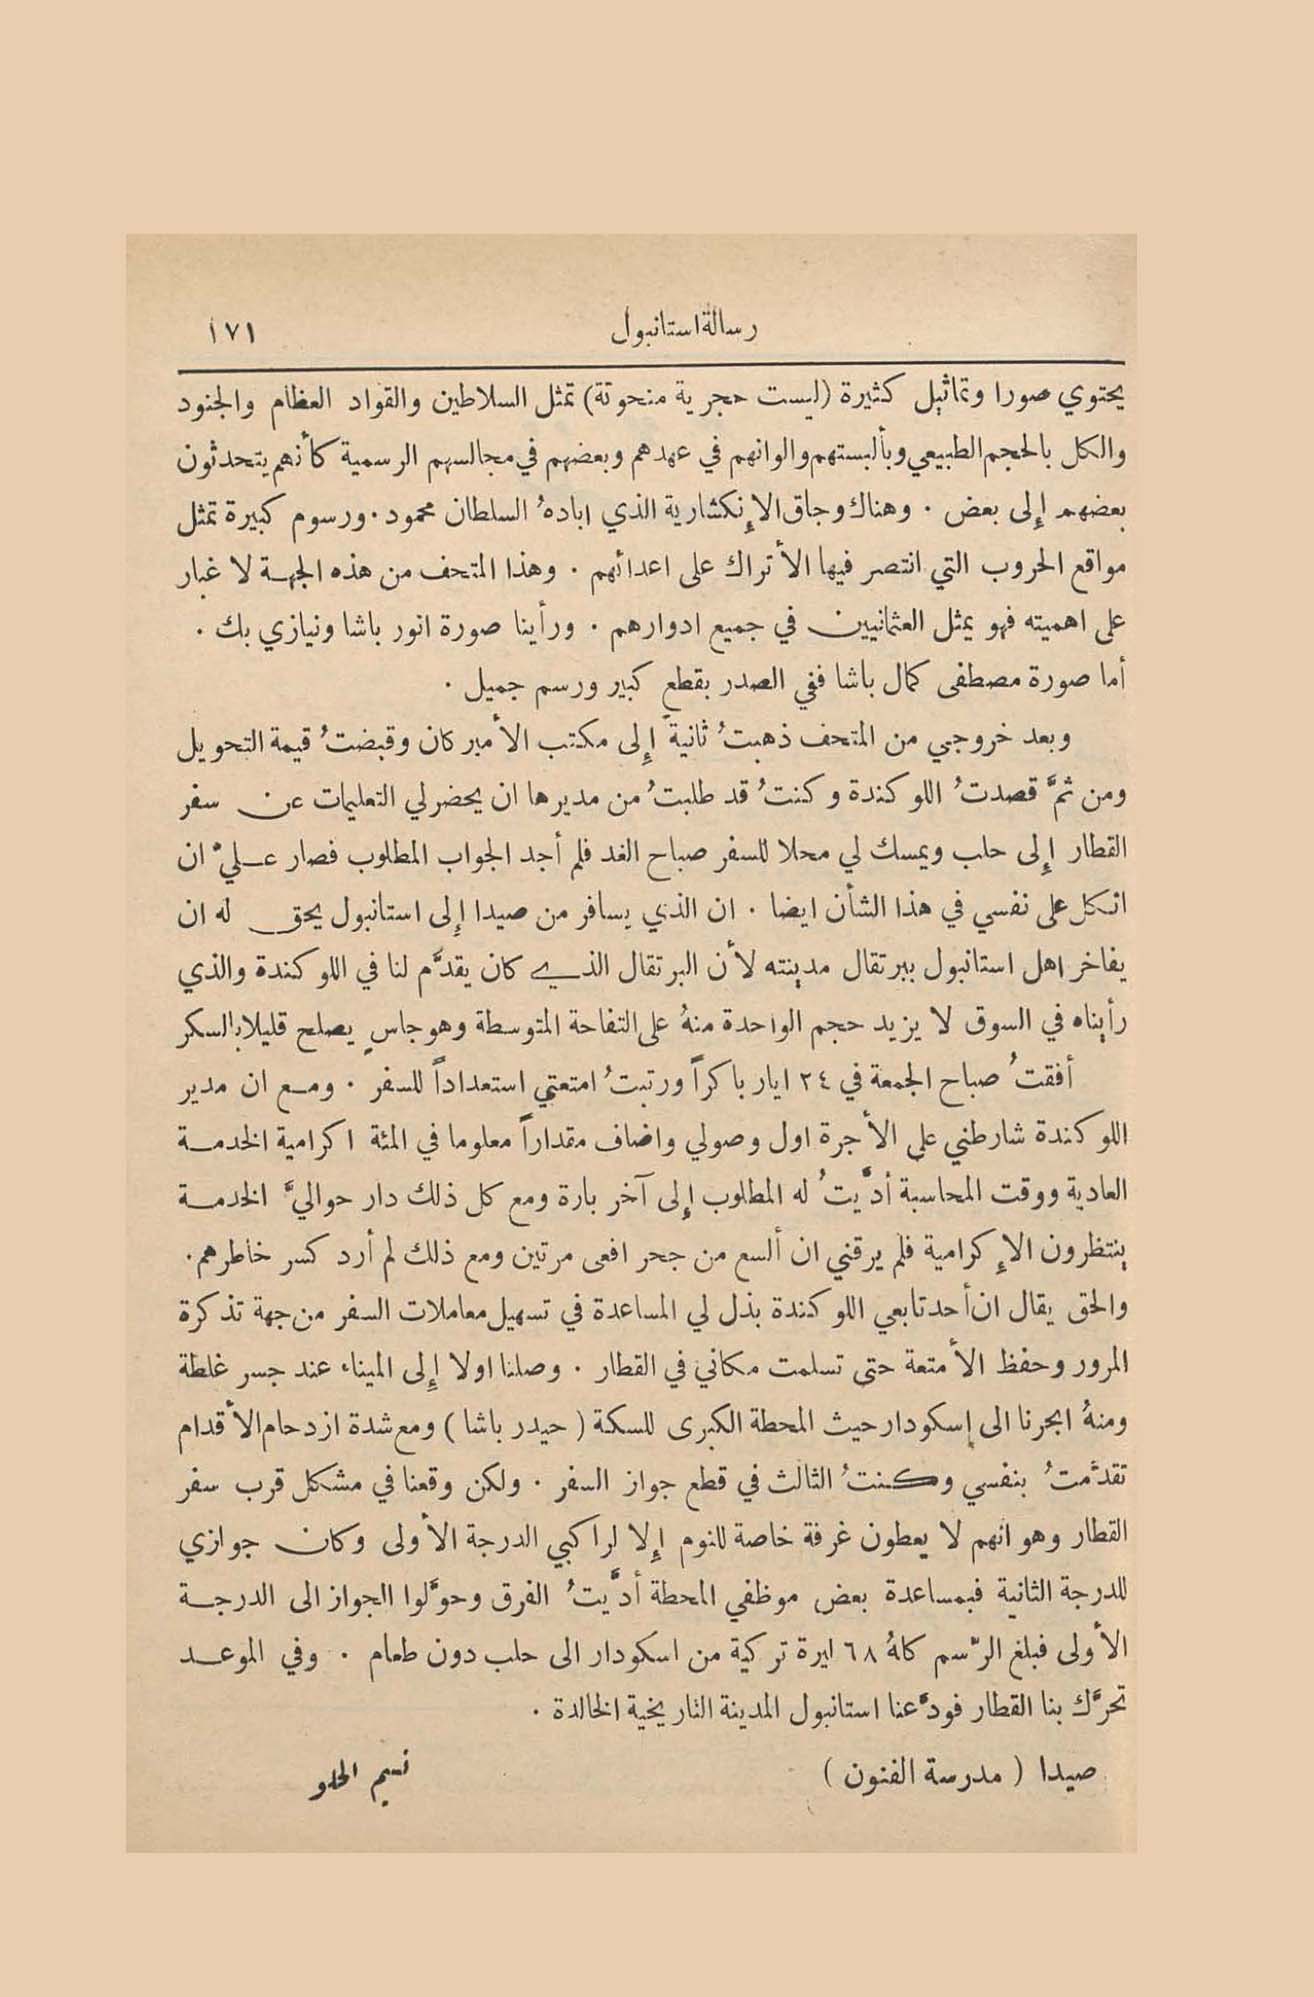 رسالة استانبول ١٧١
يحتوي صورا وتماثيل كثيرة (ليست حجرية منحوتة) تمثل السلاطين والقواد العظام والجنود
والكل بالحجم الطبيعي وبألبستهم والوانهم في عهدهم وبعضهم في مجالسهم الرسمية كأنهم يتحدثون
بعضهم إِلى بعض . وهناك وجاق الإِنكشارية الذي اباده السلطان محمود . ورسوم كبيرة تمثل
مواقع الحروب التي انتصر فيها الأتراك على اعدائهم . وهذا المتحف من هذه الجهة لا غبار
على اهميته فهو يمثل العثمانيين في جميع ادوارهم . ورأينا صورة انور باشا ونيازي بك .
أما صورة مصطفى كمال باشا ففي الصدر بقطع كبير ورسم جميل .
وبعد خروجي من المتحف ذهبتُ ثانيةً إِلى مكتب الأميركان وقبضتُ قيمة التحويل
ومن ثمَّ قصدتُ اللوكندة وكنتُ قد طلبتُ من مديرها ان يحضرلي التعليمات عن سفر
القطار إِلى حلب ويمسك لي محلا للسفر صباح الغد فلم أجد الجواب المطلوب فصار عليَّ ان
اتكل على نفسي في هذا الشأن ايضا . ان الذي يسافر من صيدا إِلى استانبول يحق له ان
يفاخر اهل استانبول ببرتقال مدينته لأن البرتقال الذي كان يقدَّم لنا في اللوكندة والذي
رأيناه في السوق لا يزيد حجم الواحدة منهُ على التفاحة المتوسطة وهو جاسٍ يصلح قليلا بالسكر
أفقتُ صباح الجمعة في ٢٤ ايار باكراً ورتبتُ امتعتي استعداداً للسفر . ومع ان مدير
اللوكندة شارطني على الأجرة اول وصولي واضاف مقداراً معلوما في المئة اكرامية الخدمة
العادية ووقت المحاسبة أدَّيتُ له المطلوب إِلى آخر بارة ومع كل ذلك دار حواليَّ الخدمة
ينتظرون الإِكرامية فلم يرقني ان ألسع من جحر افعى مرتين ومع ذلك لم أرد كسر خاطرهم .
والحق يقال ان أحد تابعي اللوكندة بذل لي المساعدة في تسهيل معاملات السفر من جهة تذكرة
المرور وحفظ الأمتعة حتى تسلمت مكاني في القطار . وصلنا اولا إِلى الميناء عند جسر غلطة
ومنهُ ابحرنا الى إسكودار حيث المحطة الكبرى للسكة ( حيدر باشا ) ومع شدة ازدحام الأقدام
تقدَّمتُ بنفسي وكنتُ الثالث في قطع جواز السفر . ولكن وقعنا في مشكل قرب سفر
القطار وهو انهم لا يعطون غرفة خاصة للنوم إِلا لراكبي الدرجة الأولى وكان جوازي
للدرجة الثانية فبمساعدة بعض موظفي المحطة أدَّيتُ الفرق وحوَّلوا الجواز الى الدرجة
الأولى فبلغ الرَّسم كلهُ ٦٨ ليرة تركية من اسكودار الى حلب دون طعام . وفي الموعد
تحرَّك بنا القطار فودَّعنا استانبول المدينة التاريخية الخالدة .
صيدا ( مدرسة الفنون ) نسيم الحلو